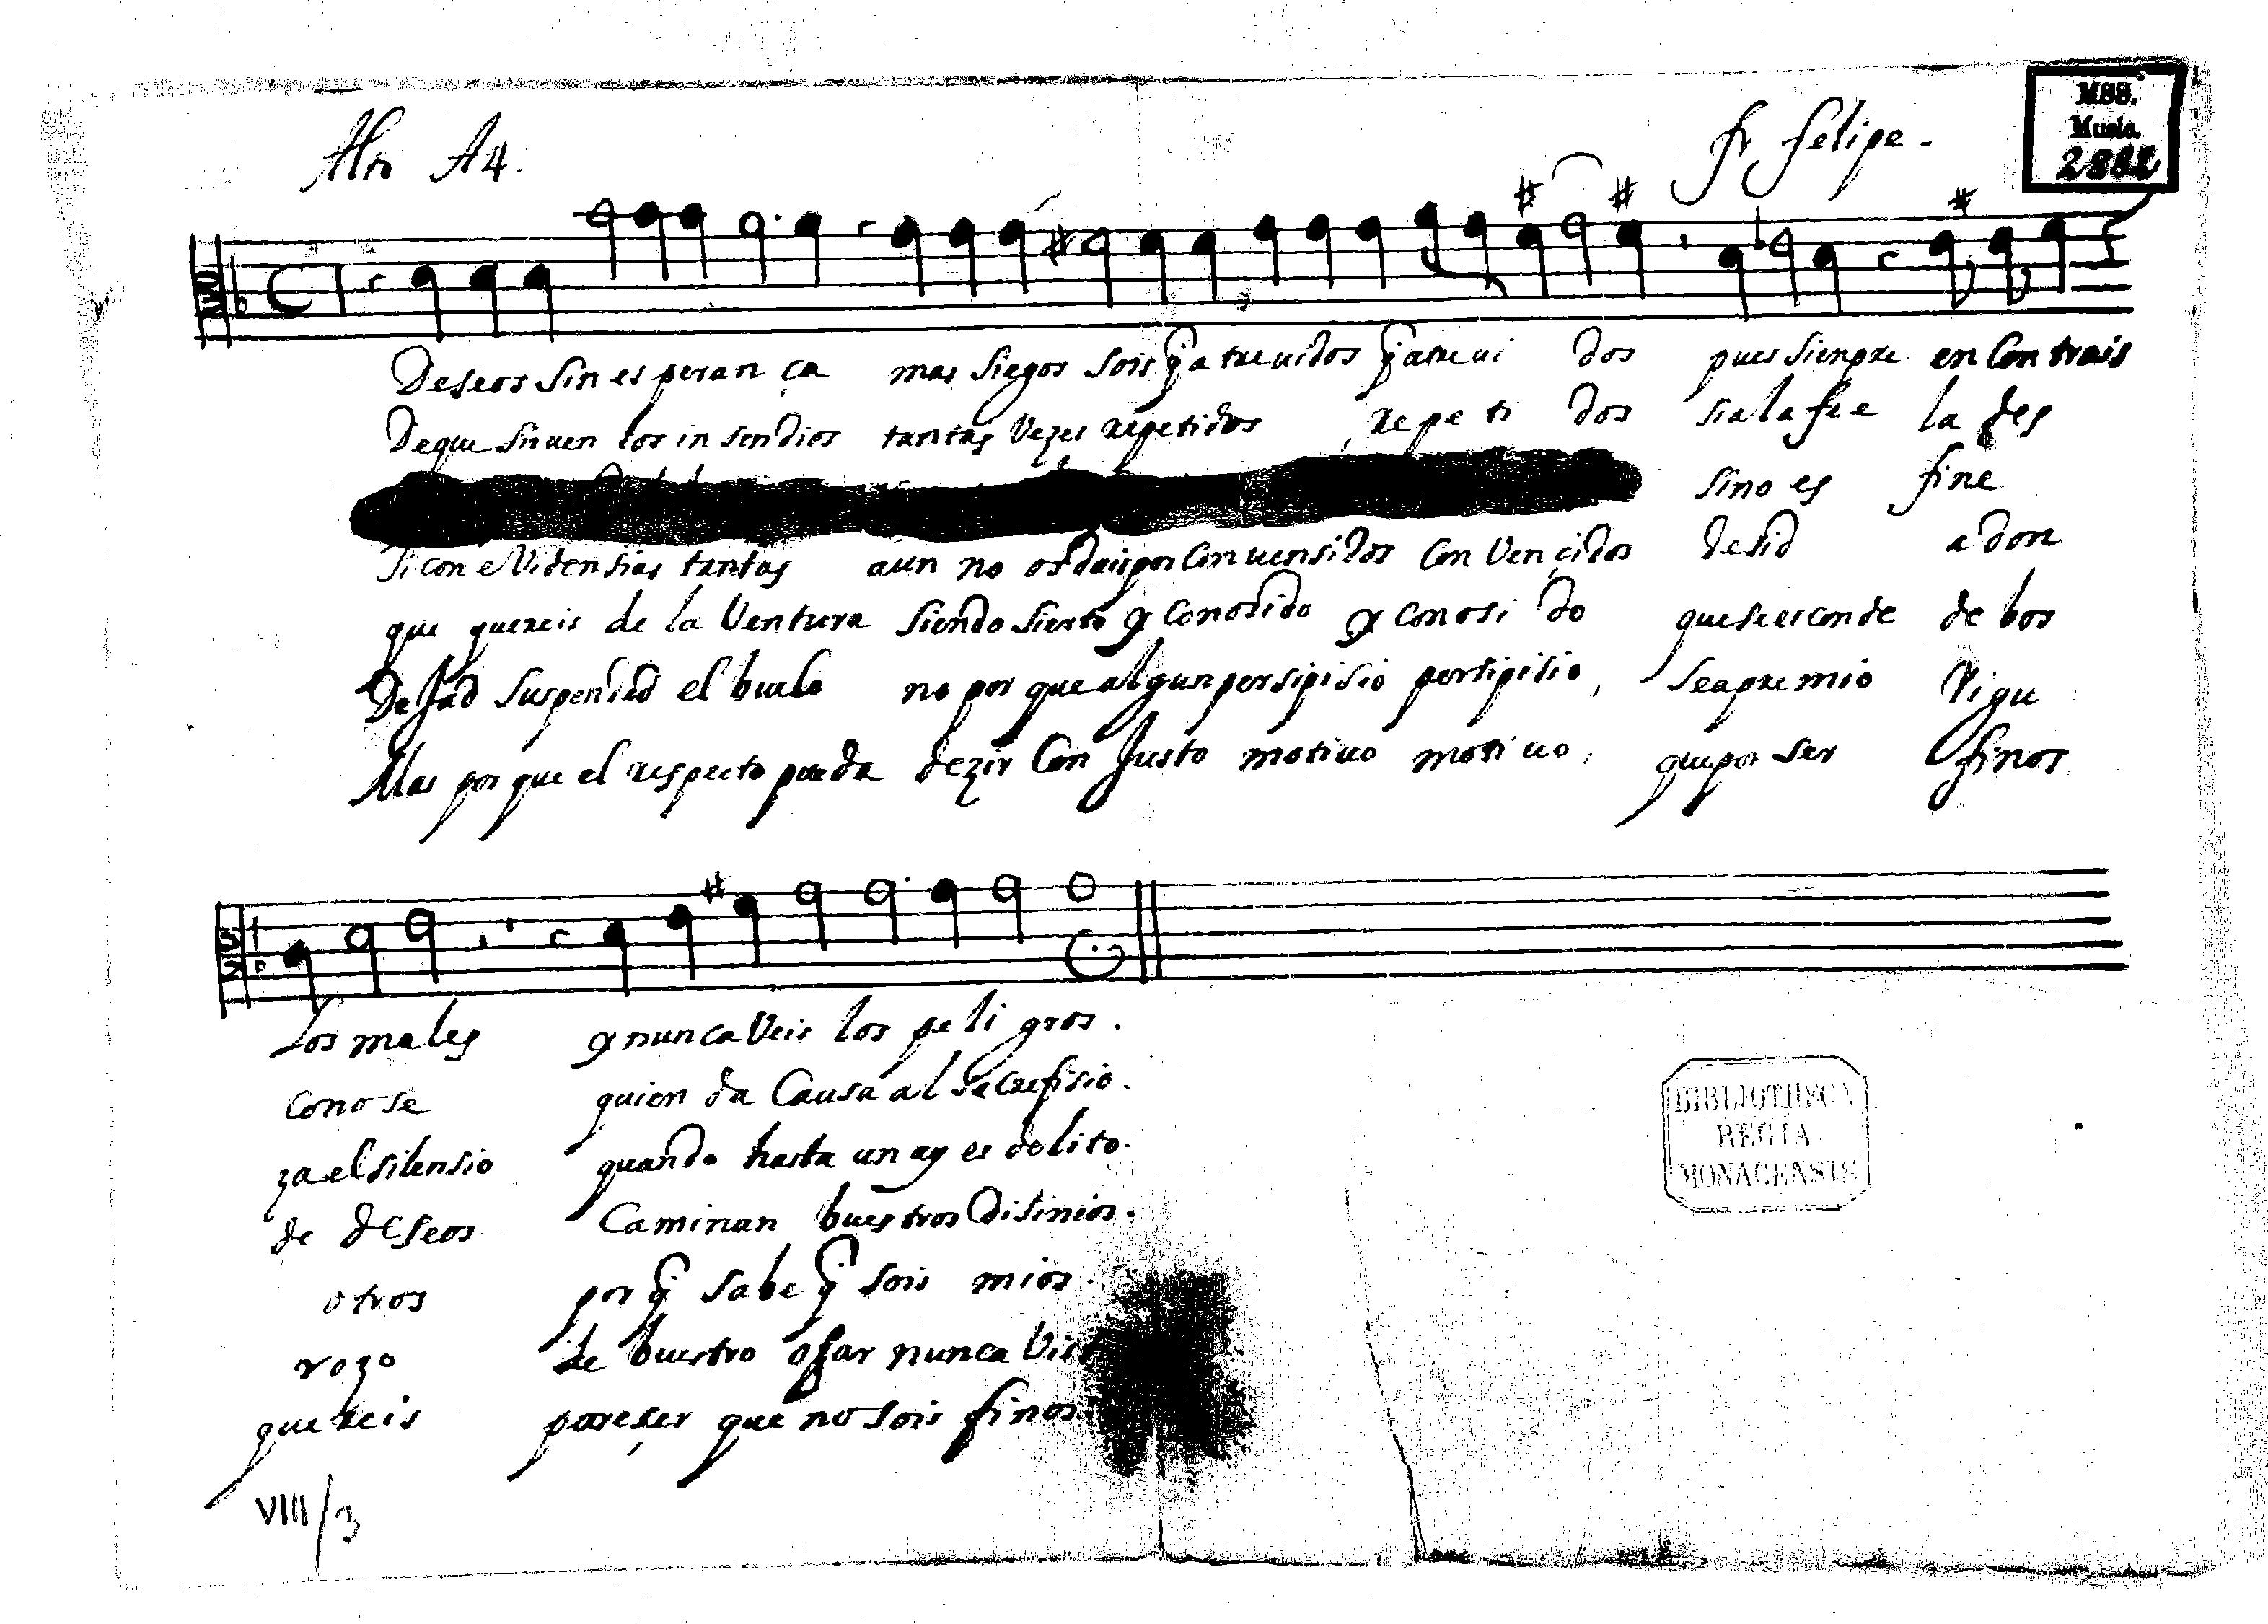 Alto A4.
fr felipe.
MSS.
Music.
2882
Deseos sin esperança mas siegos sois q̃ atreuidos q̃ atreui dos pues sienpre encontrais
De que siruen los insendios tantas Vezes repetidos repeti dos si a la fee la des
sino es fine
si con eVidensias tantas aun no os dais por Conuensidos ConVençidos desid adon
que quereis de la Ventura siendo sierto y conosido y conosi do que se esconde de bos
Dejad suspended el buelo no por que algun persipisio persipisio, sea premio Vigu
Mas por que el respecto pueda dezir Con Justo motiuo motiuo, que por ser finos
Los males y nunca Veis los peligros.
conose quien da Causa al sacrefisio.
za el silensio quando hasta un ay es delito.
de deseos Caminan buestros disinios.
otros por q̃ sabe q̃ sois mios.
rozo de buestro osar nunca
quereis pareser que no sois finos
BIBLIOTHECA
REGIA
MONACENSIS
VIII/3